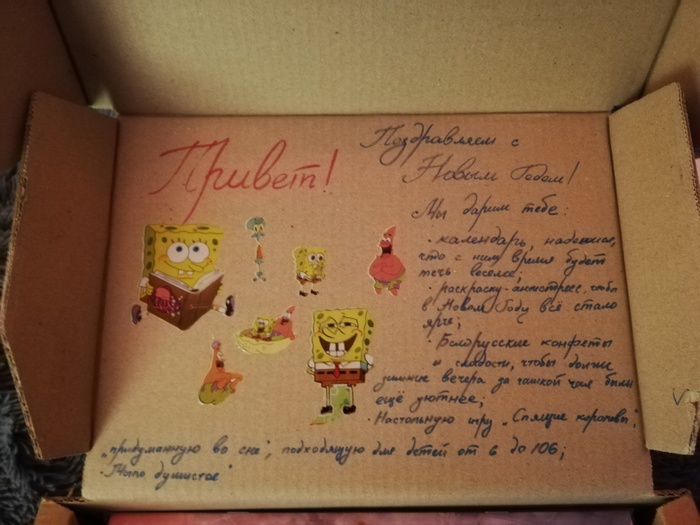 Привет!
Поздравляем с
Новым Годом!
Мы дарим тебе:
· календарь, надеемся,
что с ним время будет
течь веселее;
· раскраску-антистресс, чтобы
в Новом Году всё стало
ярче;
· Белорусские конфеты
и сладости, чтобы долгие
зимние вечера за чашкой чая были
ещё уютнее;
· Настольную игру „Спящие королевы",
„придуманную во сне", подходящую для детей от 6 до 106;
· Мыло душистое"